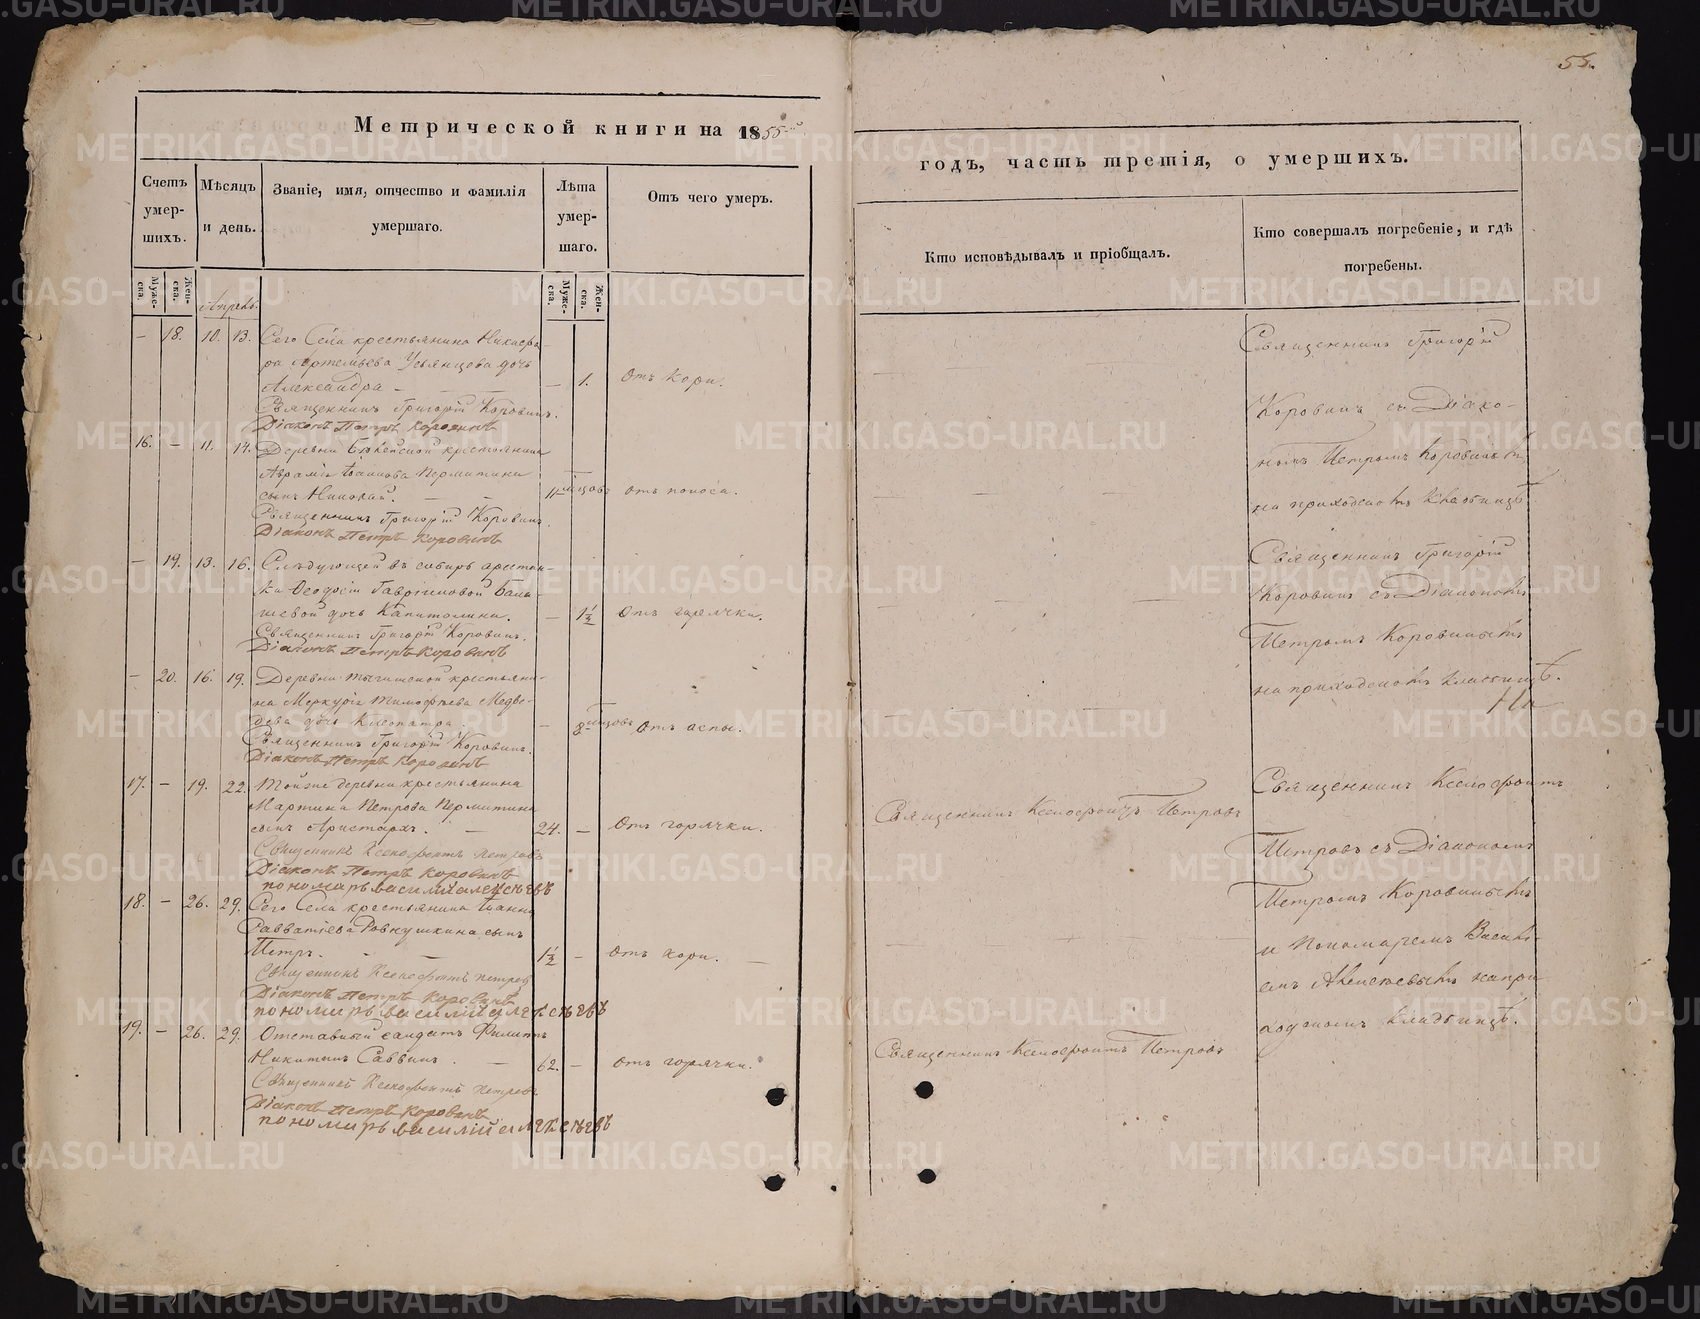 55.
Метрической книги на 1855й
годъ, часть третія, о умершихъ.
Счетъ умер-шихъ.
Мѣсяцъ и день.
Званіе, имя, отчество и фамилія умершаго.
Лѣта умер-шаго.
Отъ чего умеръ.
Кто исповѣдывалъ и пріобщалъ.
Кто совершалъ погребеніе, и гдѣ погребены.
Муже-ска.
Жен-ска.
Муже-ска.
Жен-ска.
Апрель.
– 18. 10. 13. Сего Села крестьянина Никифо-
ра Артемьева Усьянцова дочь
Александра – – 1. Отъ кори.
Священникъ Григорій Коровинъ.
Діаконъ Петръ Коровинъ
16. – 11. 14. Деревни крестьянина
Авраміа Іоаннова Пермикина
сынъ Николай. – – 11 мѣсцовъ отъ поноса.
Священникъ Григорій Коровинъ.
Діаконъ Петръ Коровинъ
– 19. 13. 16. Слѣдующей въ сибирь арестан-
ки Ѳеодосіи Гавріиловой
дочь Капитолина. – 1½ Отъ горячки.
Священникъ Григорій Коровинъ.
Діаконъ Петръ Коровинъ
– 20. 16. 19. Деревни крестьяни-
на Меркурія Тимофѣева Медвѣ-
дева дочь Клеопатра. – 8 мѣсцовъ Отъ оспы.
Священникъ Григорій Коровинъ.
Діаконъ Петръ Коровинъ
17. – 19. 22. Тойже деревни крестьянина
Мартина Петрова Пермикина
сынъ Аристархъ. – 24. – Отъ горячки.
Священникъ Ксенофонтъ Петровъ
Діаконъ Петръ Коровинъ
пономарь василий алексѣевъ
18. – 26. 29. Сего Села крестьянина Іоанна
Савватіева Ровнушкина сынъ
Петръ. – – 1½ – Отъ кори. –
Священникъ Ксенофонтъ Петров
Діаконъ Петръ Коровинъ
пономарь василий алексѣевъ
19. – 26. 29. Отставный салдатъ Филипъ
Никитинъ Саввинъ. – 62. – Отъ горячки.
Священникъ Ксенофонтъ Петровъ
Діаконъ Петръ Коровинъ
пономарь василий алексѣевъ
Священникъ Ксенофонтъ Петровъ
Священникъ Ксенофонтъ Петровъ
Священникъ Григорій
Коровинъ съ Діако-
номъ Петромъ Коровинымъ
на приходскомъ Кладбищѣ.
Священникъ Григорій
Коровинъ съ Діакономъ
Петромъ Коровинымъ
на приходскомъ кладбищѣ.
Священникъ Ксенофонтъ
Петровъ съ Діакономъ
Петромъ Коровинымъ
и Пономаремъ Васілі-
емъ Алексѣевымъ на при-
ходскомъ Кладбищѣ.
METRIKI.GASO-URAL.RU